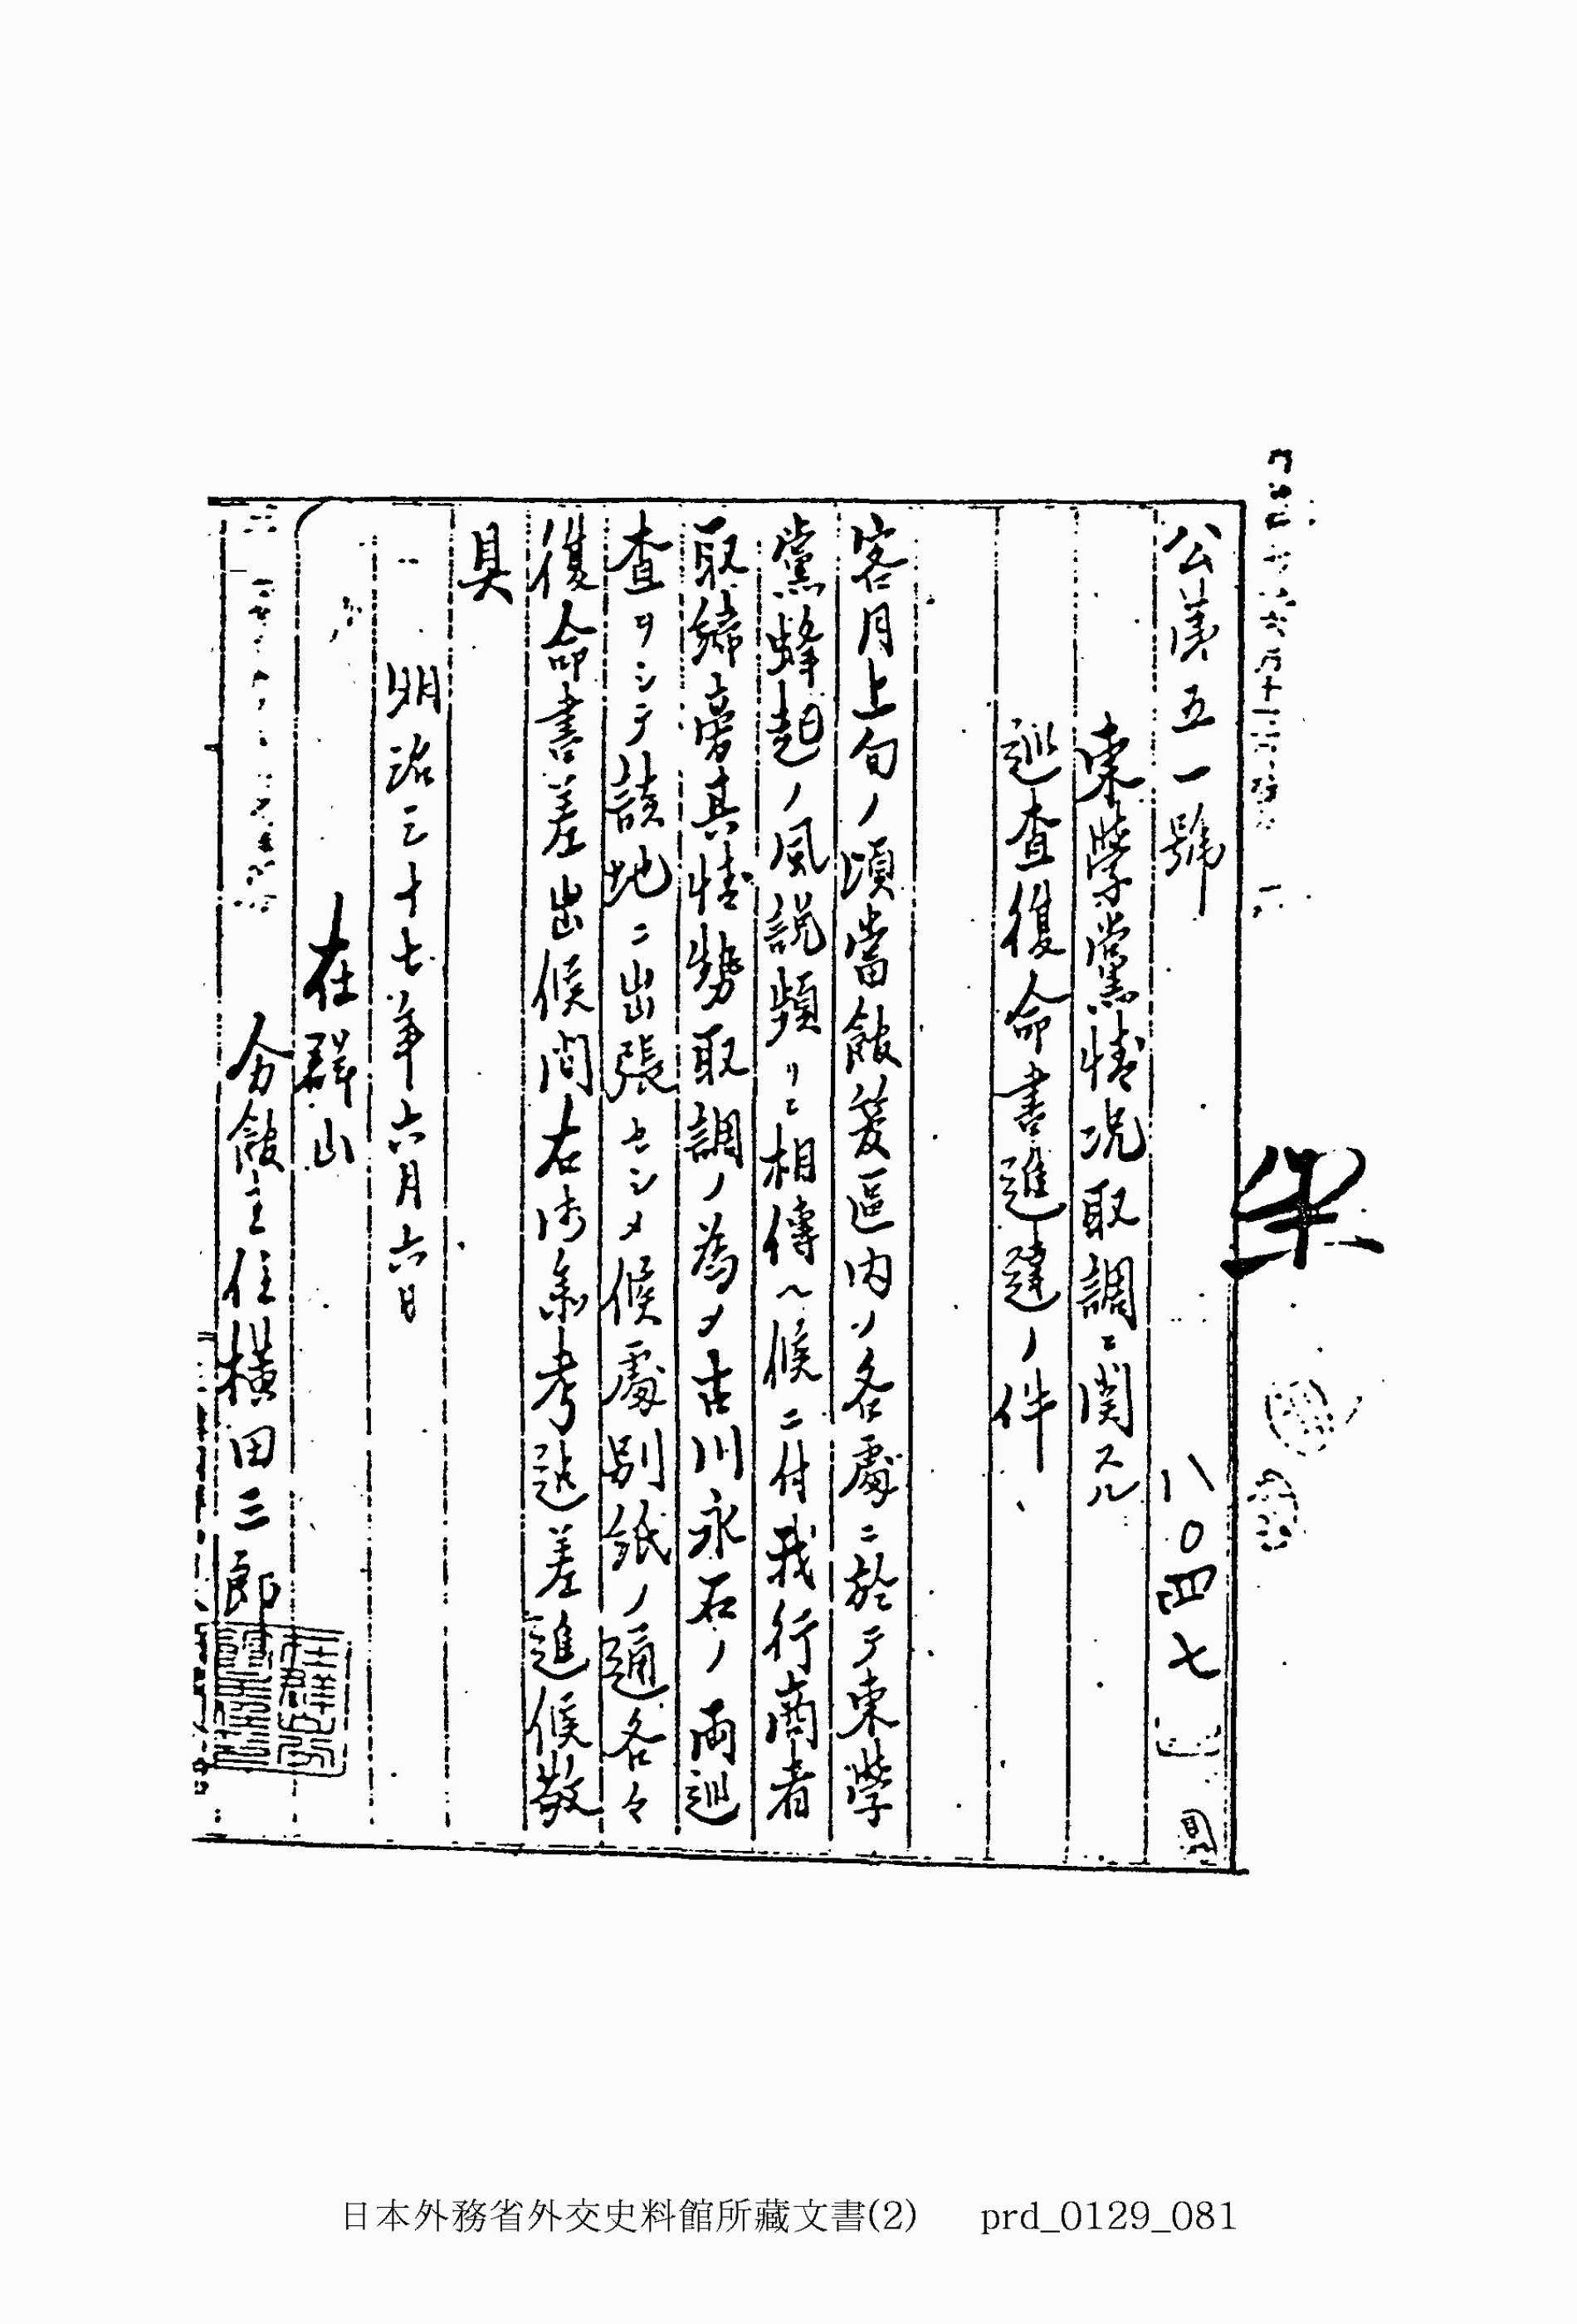 公第五一號
八〇四七
東學黨情況取調ニ関スル
巡查復命書進達ノ件
客月上旬ノ頃當館管區内ノ各處ニ於テ東學
黨蜂起ノ風説頻リニ相傳ヘ候ニ付我行商者
取締旁其情勢取調ノ為メ古川永石ノ両巡
查ヲシテ該地ニ出張セシメ候處別紙ノ通各々
復命書差出候間右御参考迠差進候敬
具
明治三十七年六月六日
在群山
分館主任横田三郎
日本外務省外交史料館所藏文書(2) prd_0129_081